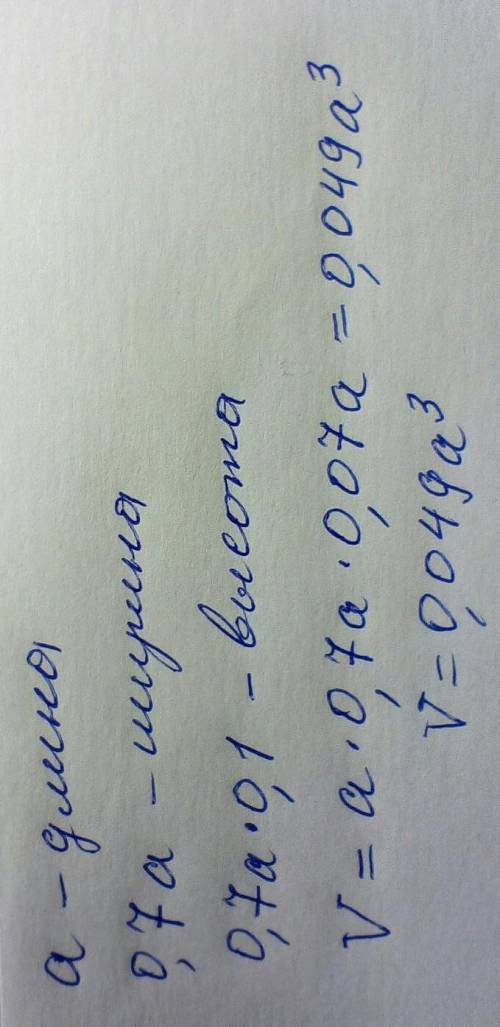 a - длина
0,7a - ширина
0,7a·0,1 - высота
V = a·0,7a·0,07a = 0,049a³
V = 0,049a³